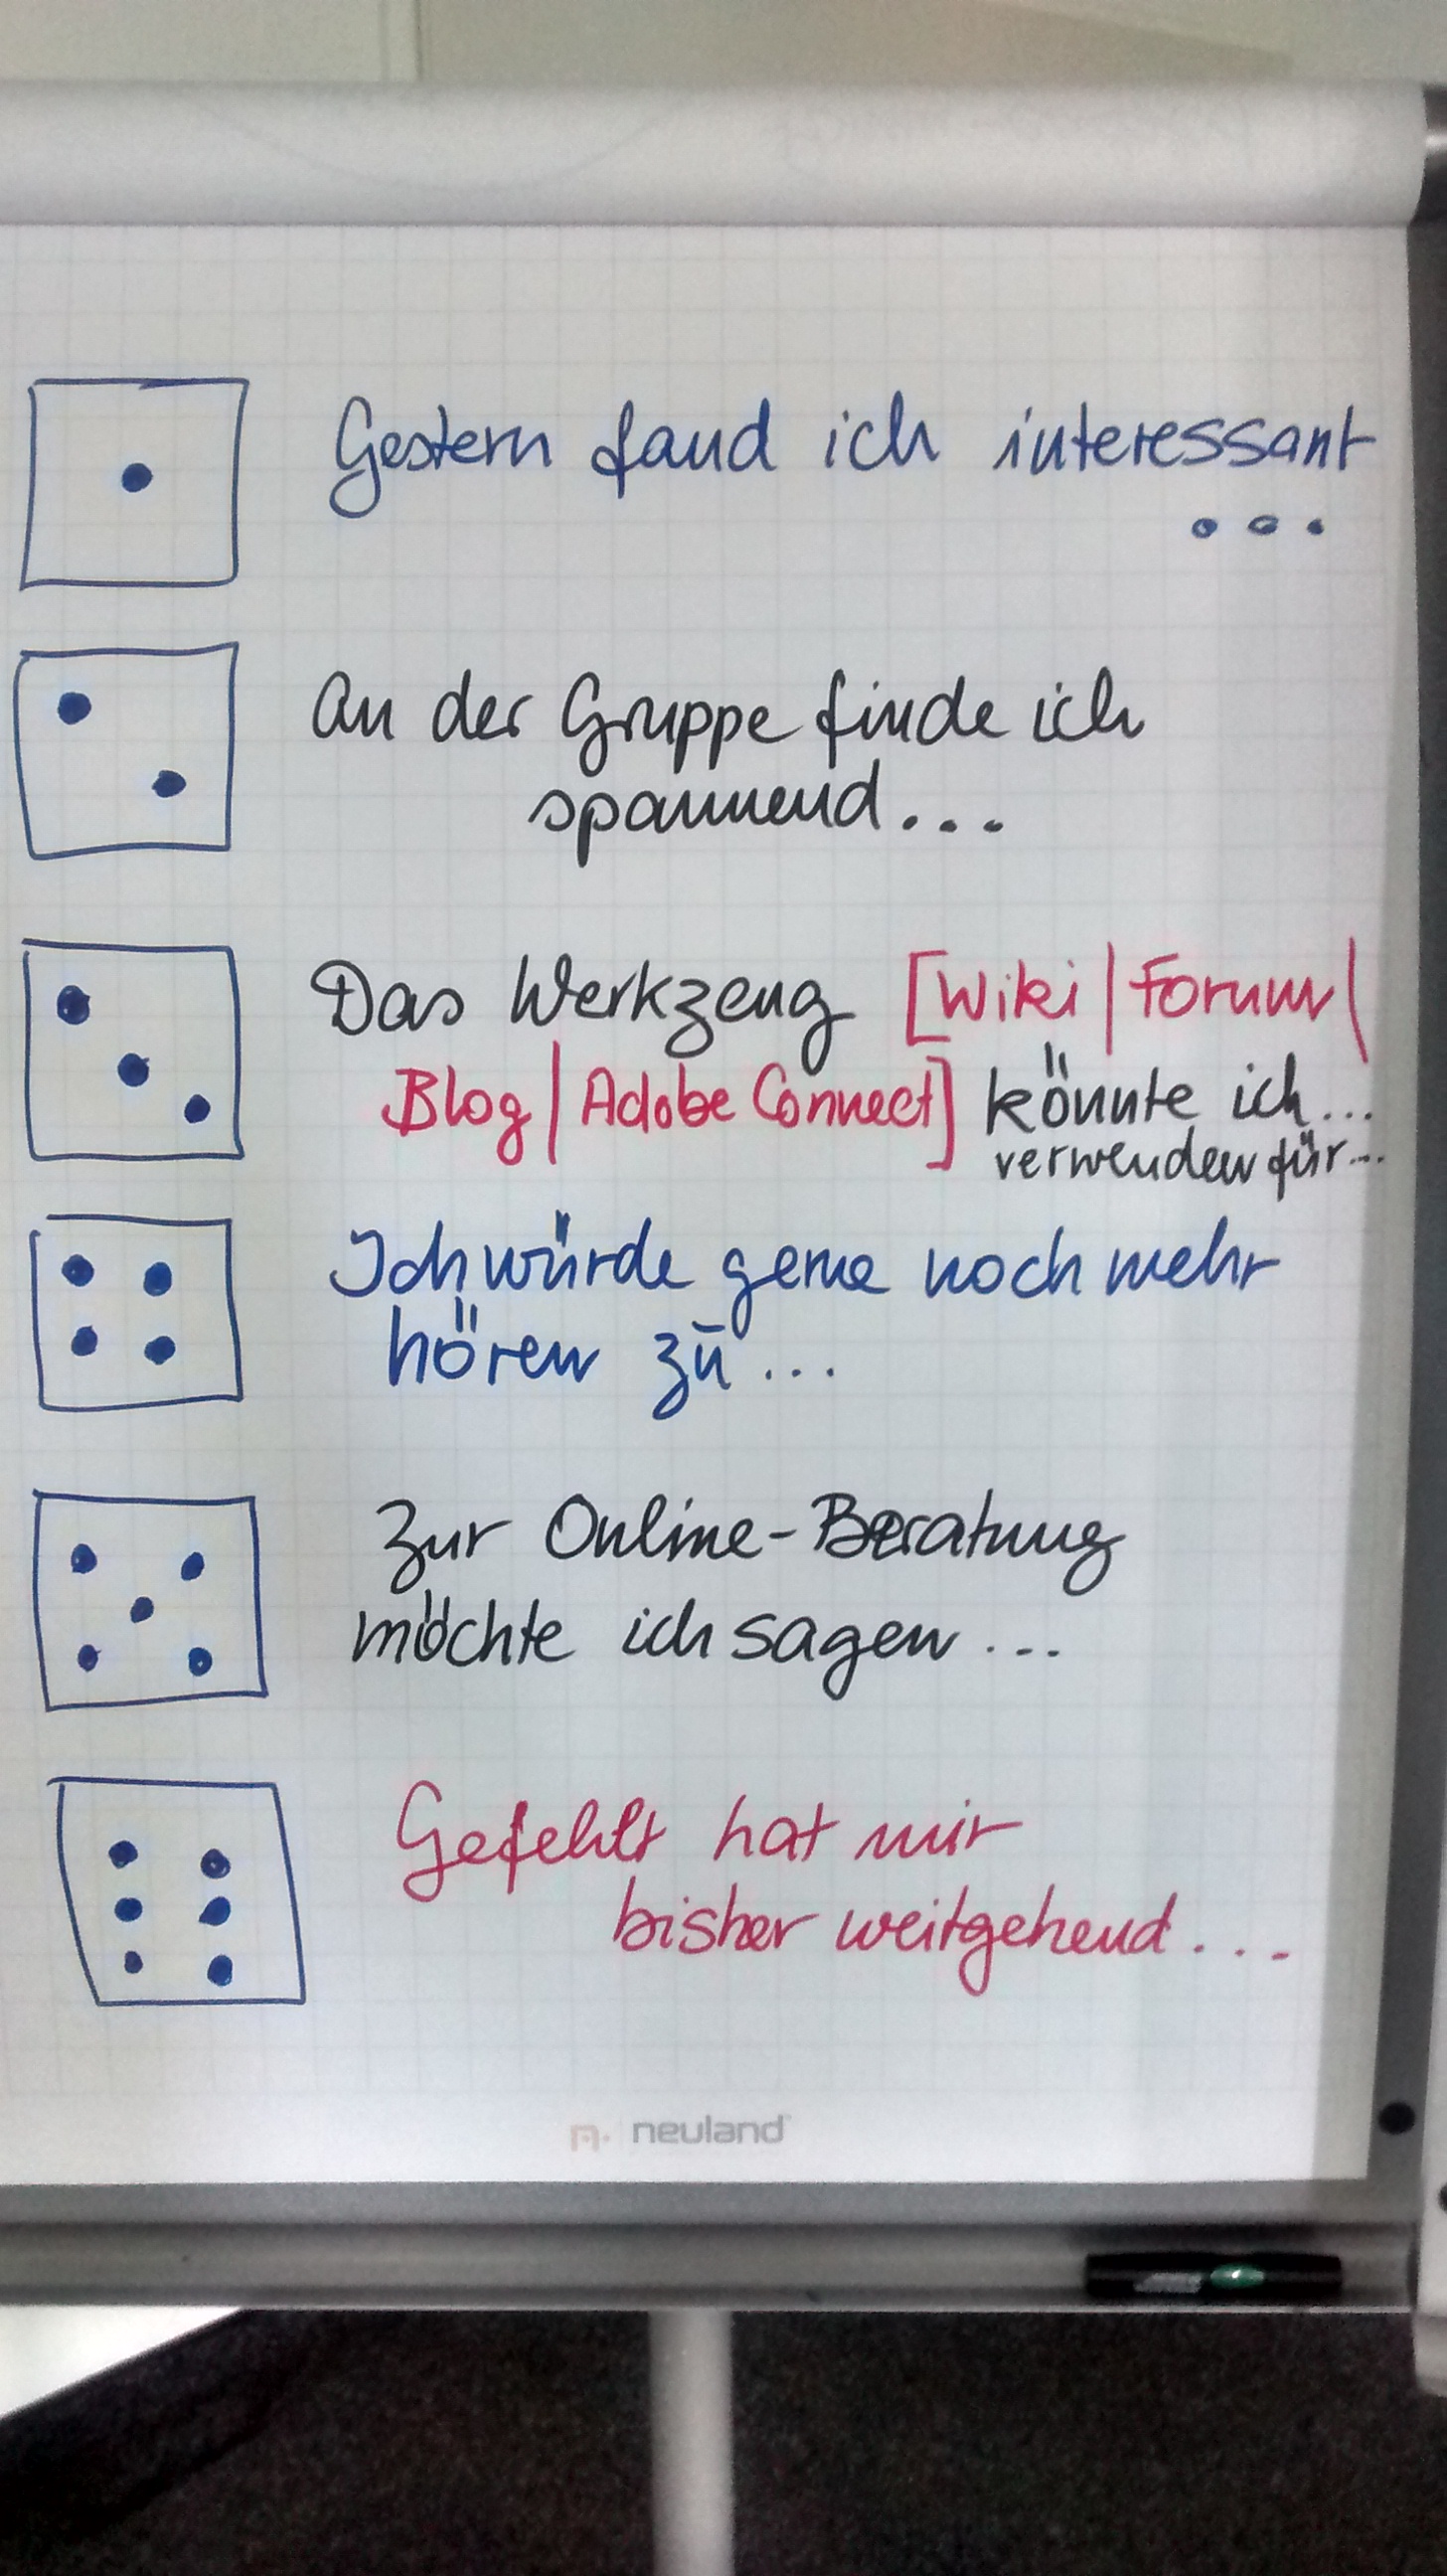 Gestern fand ich interessant
...
An der Gruppe finde ich
spannend...
Das Werkzeug [Wiki|Forum|
Blog|Adobe Connect] könnte ich...
verwenden für...
Ich würde gerne noch mehr
hören zu...
Zur Online-Beratung
möchte ich sagen...
Gefehlt hat mir
bisher weitgehend...
neuland